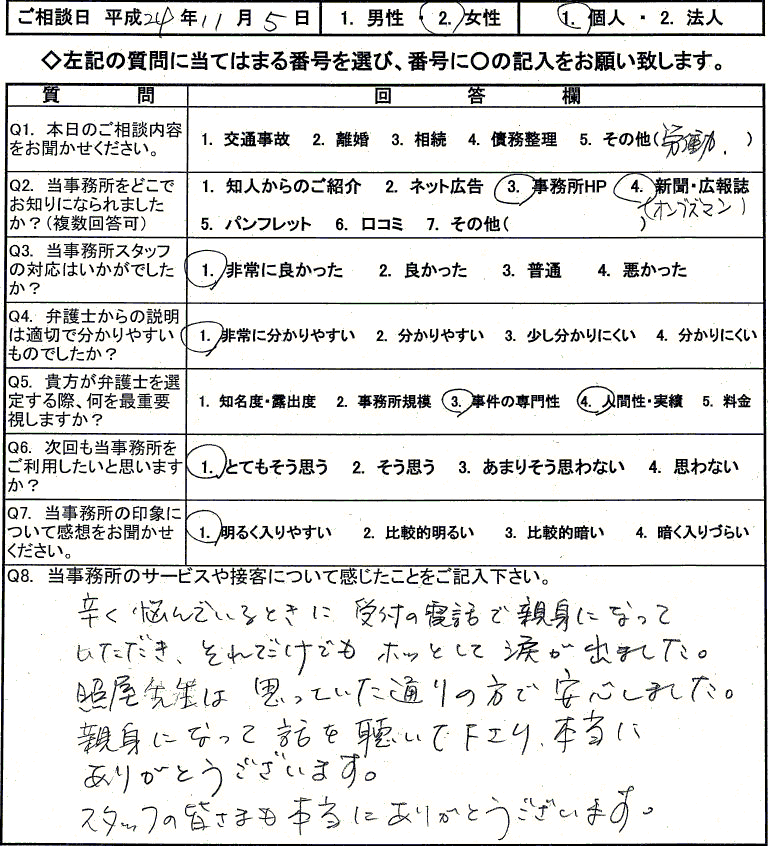 ご相談日 平成24年11月5日 1. 男性 ・ 2. 女性 1. 個人 ・ 2. 法人
◇左記の質問に当てはまる番号を選び、番号に〇の記入をお願い致します。
質 問 回 答 欄
Q1. 本日のご相談内容
をお聞かせください。
1. 交通事故 2. 離婚 3. 相続 4. 債務整理 5. その他(労働. )
Q2. 当事務所をどこで
お知りになられました
か?(複数回答可)
1. 知人からのご紹介 2. ネット広告 3. 事務所HP 4. 新聞・広報誌
(オンブズマン)
5. パンフレット 6. 口コミ 7. その他( )
Q3. 当事務所スタッフ
の対応はいかがでした
か?
1. 非常に良かった 2. 良かった 3. 普通 4. 悪かった
Q4. 弁護士からの説明
は適切で分かりやすい
ものでしたか?
1. 非常に分かりやすい 2. 分かりやすい 3. 少し分かりにくい 4. 分かりにくい
Q5. 貴方が弁護士を選
定する際、何を最重要
視しますか?
1. 知名度・露出度 2. 事務所規模 3. 事件の専門性 4. 人間性・実績 5. 料金
Q6. 次回も当事務所を
ご利用したいと思います
か?
1. とてもそう思う 2. そう思う 3. あまりそう思わない 4. 思わない
Q7. 当事務所の印象に
ついて感想をお聞かせ
ください。
1. 明るく入りやすい 2. 比較的明るい 3. 比較的暗い 4. 暗く入りづらい
Q8. 当事務所のサービスや接客について感じたことをご記入下さい。
辛く悩んでいるときに 受付の電話で親身になって
いただき、それだけでも ホッとして 涙が出ました。
照屋先生は 思っていた通りの方で 安心しました。
親身になって 話を聴いて下さり、本当に
ありがとうございます。
スタッフの皆さまも本当にありがとうございます。